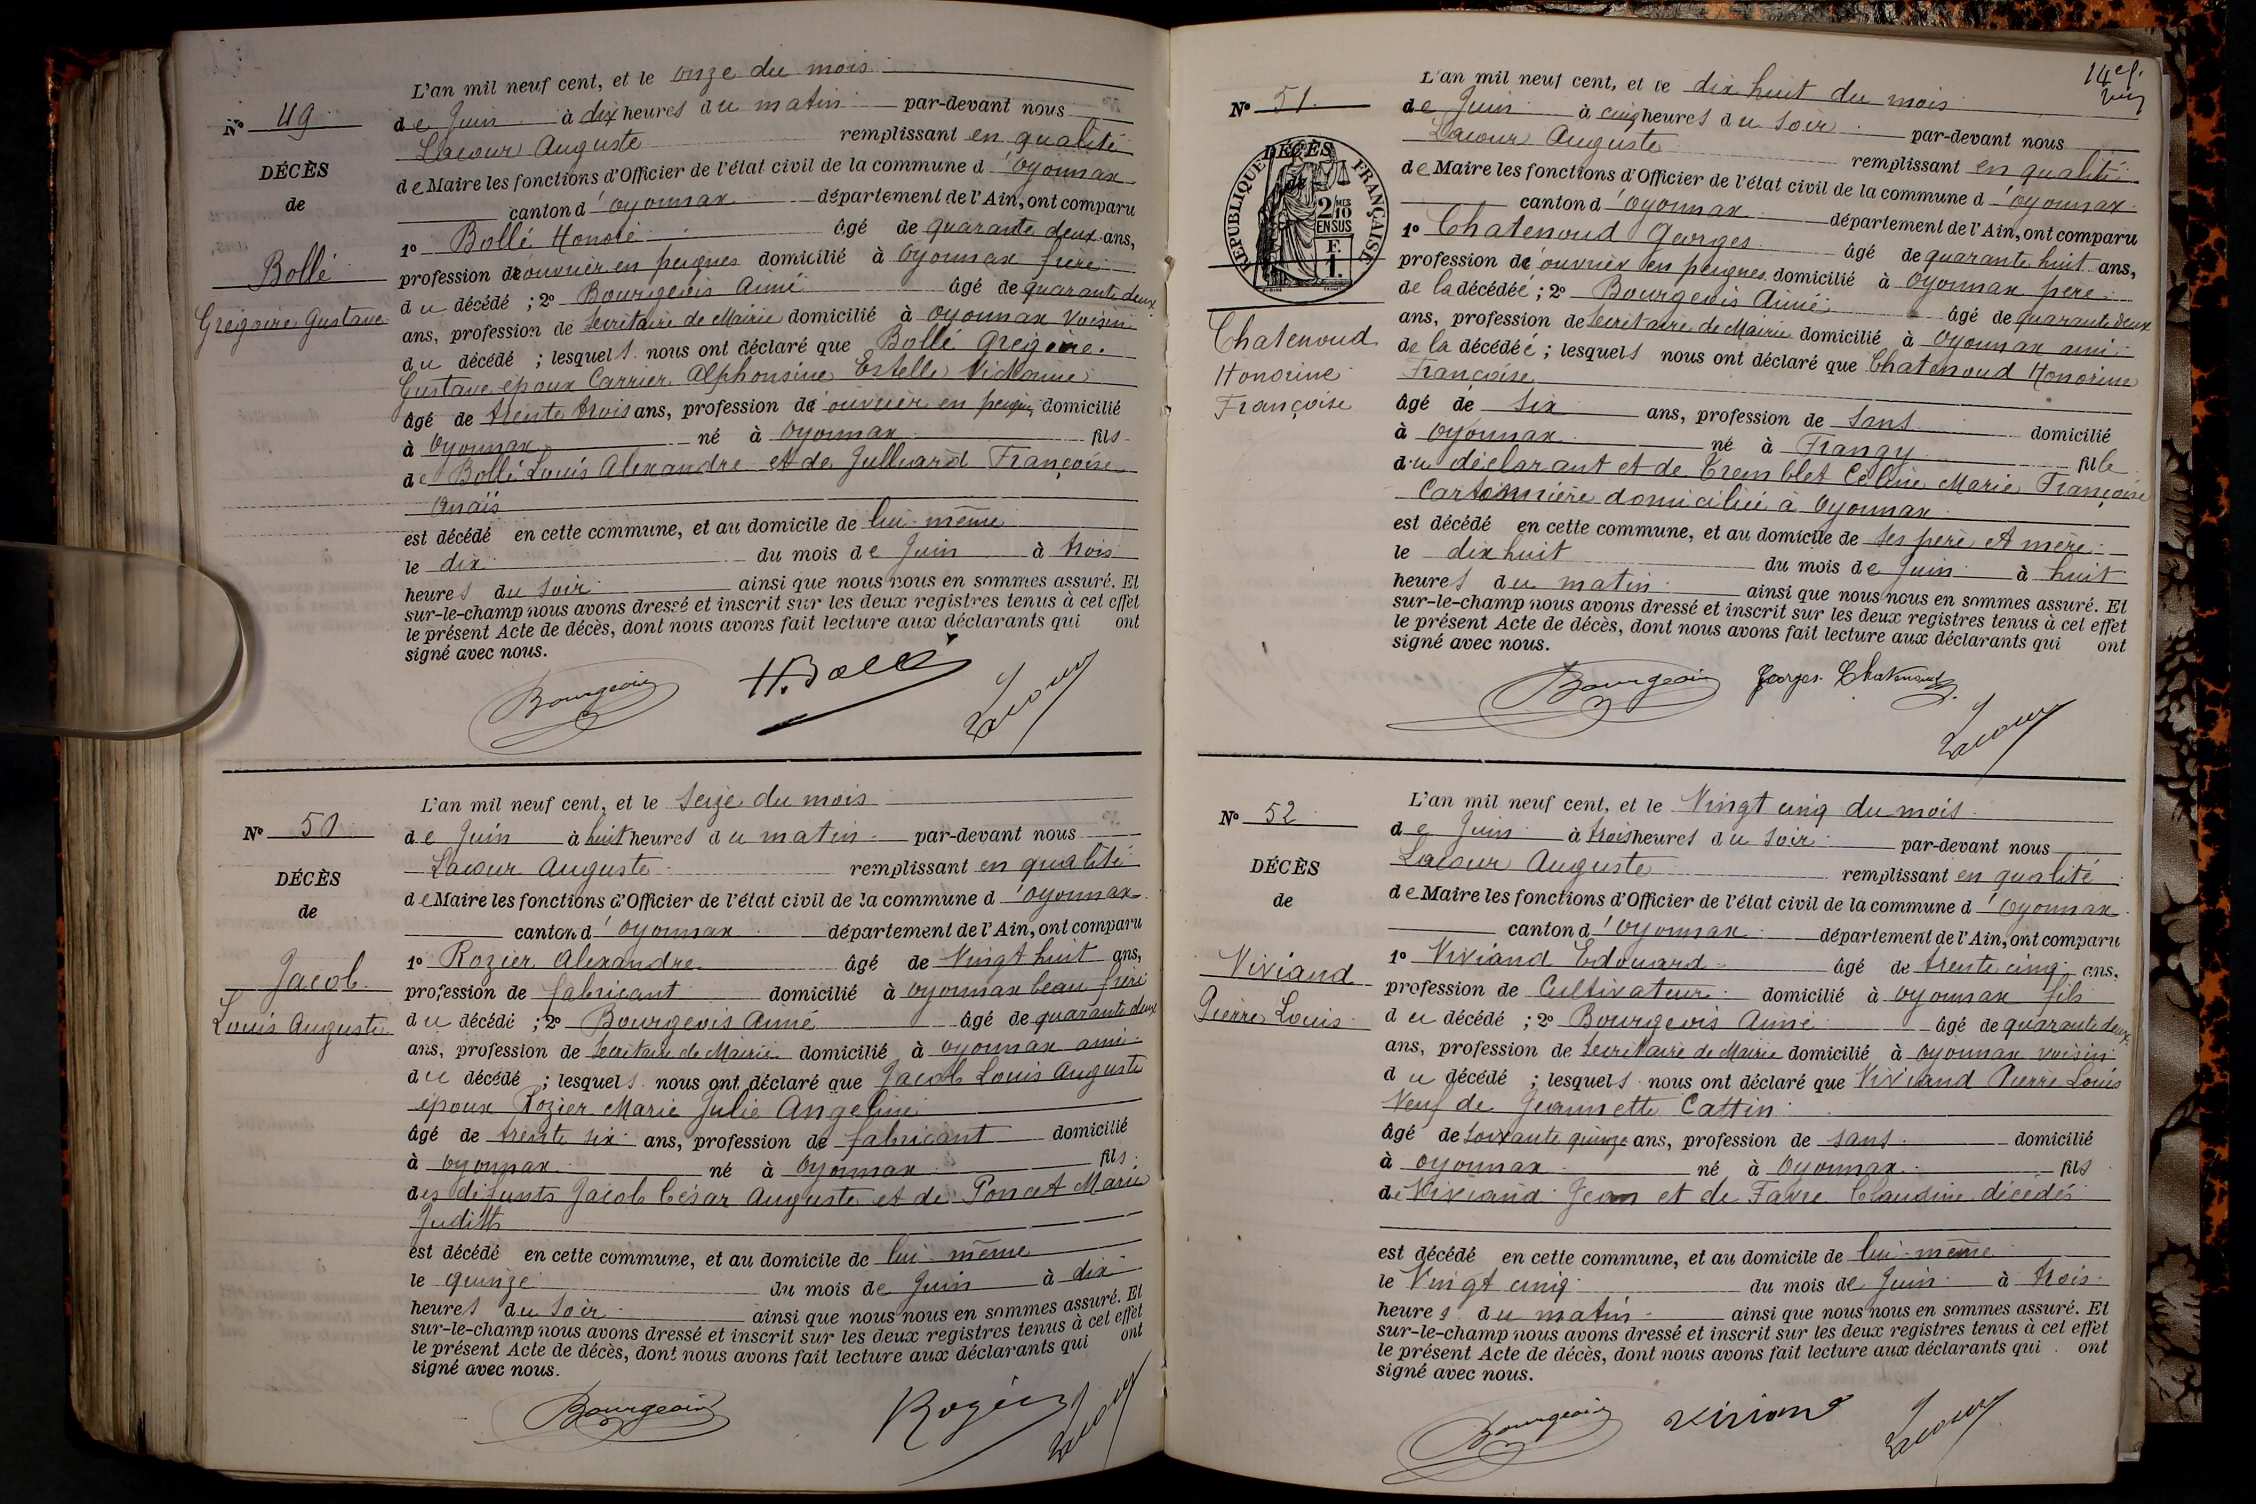 N° 49
DÉCÈS
de
Bollé
Grégoire Gustave
L'an mil neuf cent, et le onze du mois
de Juin à dix heures du matin par-devant nous
Lacour Auguste remplissant en qualité
de Maire les fonctions d'Officier de l'état civil de la commune d'Oyonnax
canton d'Oyonnax département de l'Ain, ont comparu
1° Bollé Honoré âgé de quarante deux ans,
profession de ouvrier en peignes domicilié à Oyonnax frère
du décédé ; 2° Bourgeois Aimé âgé de quarante deux
ans, profession de Secrétaire de Mairie domicilié à Oyonnax voisin
du décédé ; lesquels nous ont déclaré que Bollé Grégoire
Gustave époux Carrier Alphonsine Estelle
âgé de trente trois ans, profession de ouvrier en peignes domicilié
à Oyonnax né à Oyonnax fils
de Bollé Louis Alexandre et de Julliard Françoise
Anaïs
est décédé en cette commune, et au domicile de lui-même
le dix du mois de Juin à trois
heures du soir ainsi que nous nous en sommes assuré. Et
sur-le-champ nous avons dressé et inscrit sur les deux registres tenus à cet effet
le présent Acte de décès, dont nous avons fait lecture aux déclarants qui ont
signé avec nous.
Bourgeois H. Bollé Lacour
N° 50
DÉCÈS
de
Jacob
Louis Auguste
L'an mil neuf cent, et le seize du mois
de Juin à huit heures du matin par-devant nous
Lacour Auguste remplissant en qualité
de Maire les fonctions d'Officier de l'état civil de la commune d'Oyonnax
canton d'Oyonnax département de l'Ain, ont comparu
1° Rozier Alexandre âgé de Vingt huit ans,
profession de fabricant domicilié à Oyonnax beau frère
du décédé ; 2° Bourgeois Aimé âgé de quarante deux
ans, profession de Secrétaire de Mairie domicilié à Oyonnax ami
du décédé ; lesquels nous ont déclaré que Jacob Louis Auguste
époux Rozier Marie Julie Angeline
âgé de trente six ans, profession de fabricant domicilié
à Oyonnax né à Oyonnax fils
des défunts Jacob César Auguste et de Poncet Marie
Judith
est décédé en cette commune, et au domicile de lui même
le quinze du mois de Juin à dix
heures du soir ainsi que nous nous en sommes assuré. Et
sur-le-champ nous avons dressé et inscrit sur les deux registres tenus à cet effet
le présent Acte de décès, dont nous avons fait lecture aux déclarants qui ont
signé avec nous.
Bourgeois Rozier Lacour
14
N° 51
DÉCÈS
de
RÉPUBLIQUE FRANÇAISE
2/10 MES
EN SUS
F.
1.
Chatenoud
Honorine
Françoise
L'an mil neuf cent, et le dix huit du mois
de Juin à cinq heures du soir par-devant nous
Lacour Auguste remplissant en qualité
de Maire les fonctions d'Officier de l'état civil de la commune d'Oyonnax
canton d'Oyonnax département de l'Ain, ont comparu
1° Chatenoud Georges âgé de quarante huit ans,
profession de ouvrier en peignes domicilié à Oyonnax père
de la décédée ; 2° Bourgeois Aimé âgé de quarante deux
ans, profession de Secrétaire de Mairie domicilié à Oyonnax ami
de la décédée ; lesquels nous ont déclaré que Chatenoud Honorine
Françoise
âgé de six ans, profession de sans domicilié
à Oyonnax né à Frangy fille
du déclarant et de Tremblet Céline Marie Françoise
Cartonnière domiciliée à Oyonnax
est décédé en cette commune, et au domicile de ses père et mère
le dix huit du mois de Juin à huit
heures du matin ainsi que nous nous en sommes assuré. Et
sur-le-champ nous avons dressé et inscrit sur les deux registres tenus à cet effet
le présent Acte de décès, dont nous avons fait lecture aux déclarants qui ont
signé avec nous.
Bourgeois Georges Chatenoud Lacour
N° 52
DÉCÈS
de
Viviand
Pierre Louis
L'an mil neuf cent, et le Vingt cinq du mois
de Juin à trois heures du soir par-devant nous
Lacour Auguste remplissant en qualité
de Maire les fonctions d'Officier de l'état civil de la commune d'Oyonnax
canton d'Oyonnax département de l'Ain, ont comparu
1° Viviand Edouard âgé de trente cinq ans,
profession de Cultivateur domicilié à Oyonnax fils
du décédé ; 2° Bourgeois Aimé âgé de quarante deux
ans, profession de Secrétaire de Mairie domicilié à Oyonnax voisin
du décédé ; lesquels nous ont déclaré que Viviand Pierre Louis
Veuf de Jeannette Cattin
âgé de soixante quinze ans, profession de sans domicilié
à Oyonnax né à Oyonnax fils
de Viviand Jean et de Favre Claudine décédés
est décédé en cette commune, et au domicile de lui-même
le Vingt cinq du mois de Juin à trois
heures du matin ainsi que nous nous en sommes assuré. Et
sur-le-champ nous avons dressé et inscrit sur les deux registres tenus à cet effet
le présent Acte de décès, dont nous avons fait lecture aux déclarants qui ont
signé avec nous.
Bourgeois Viviand Lacour